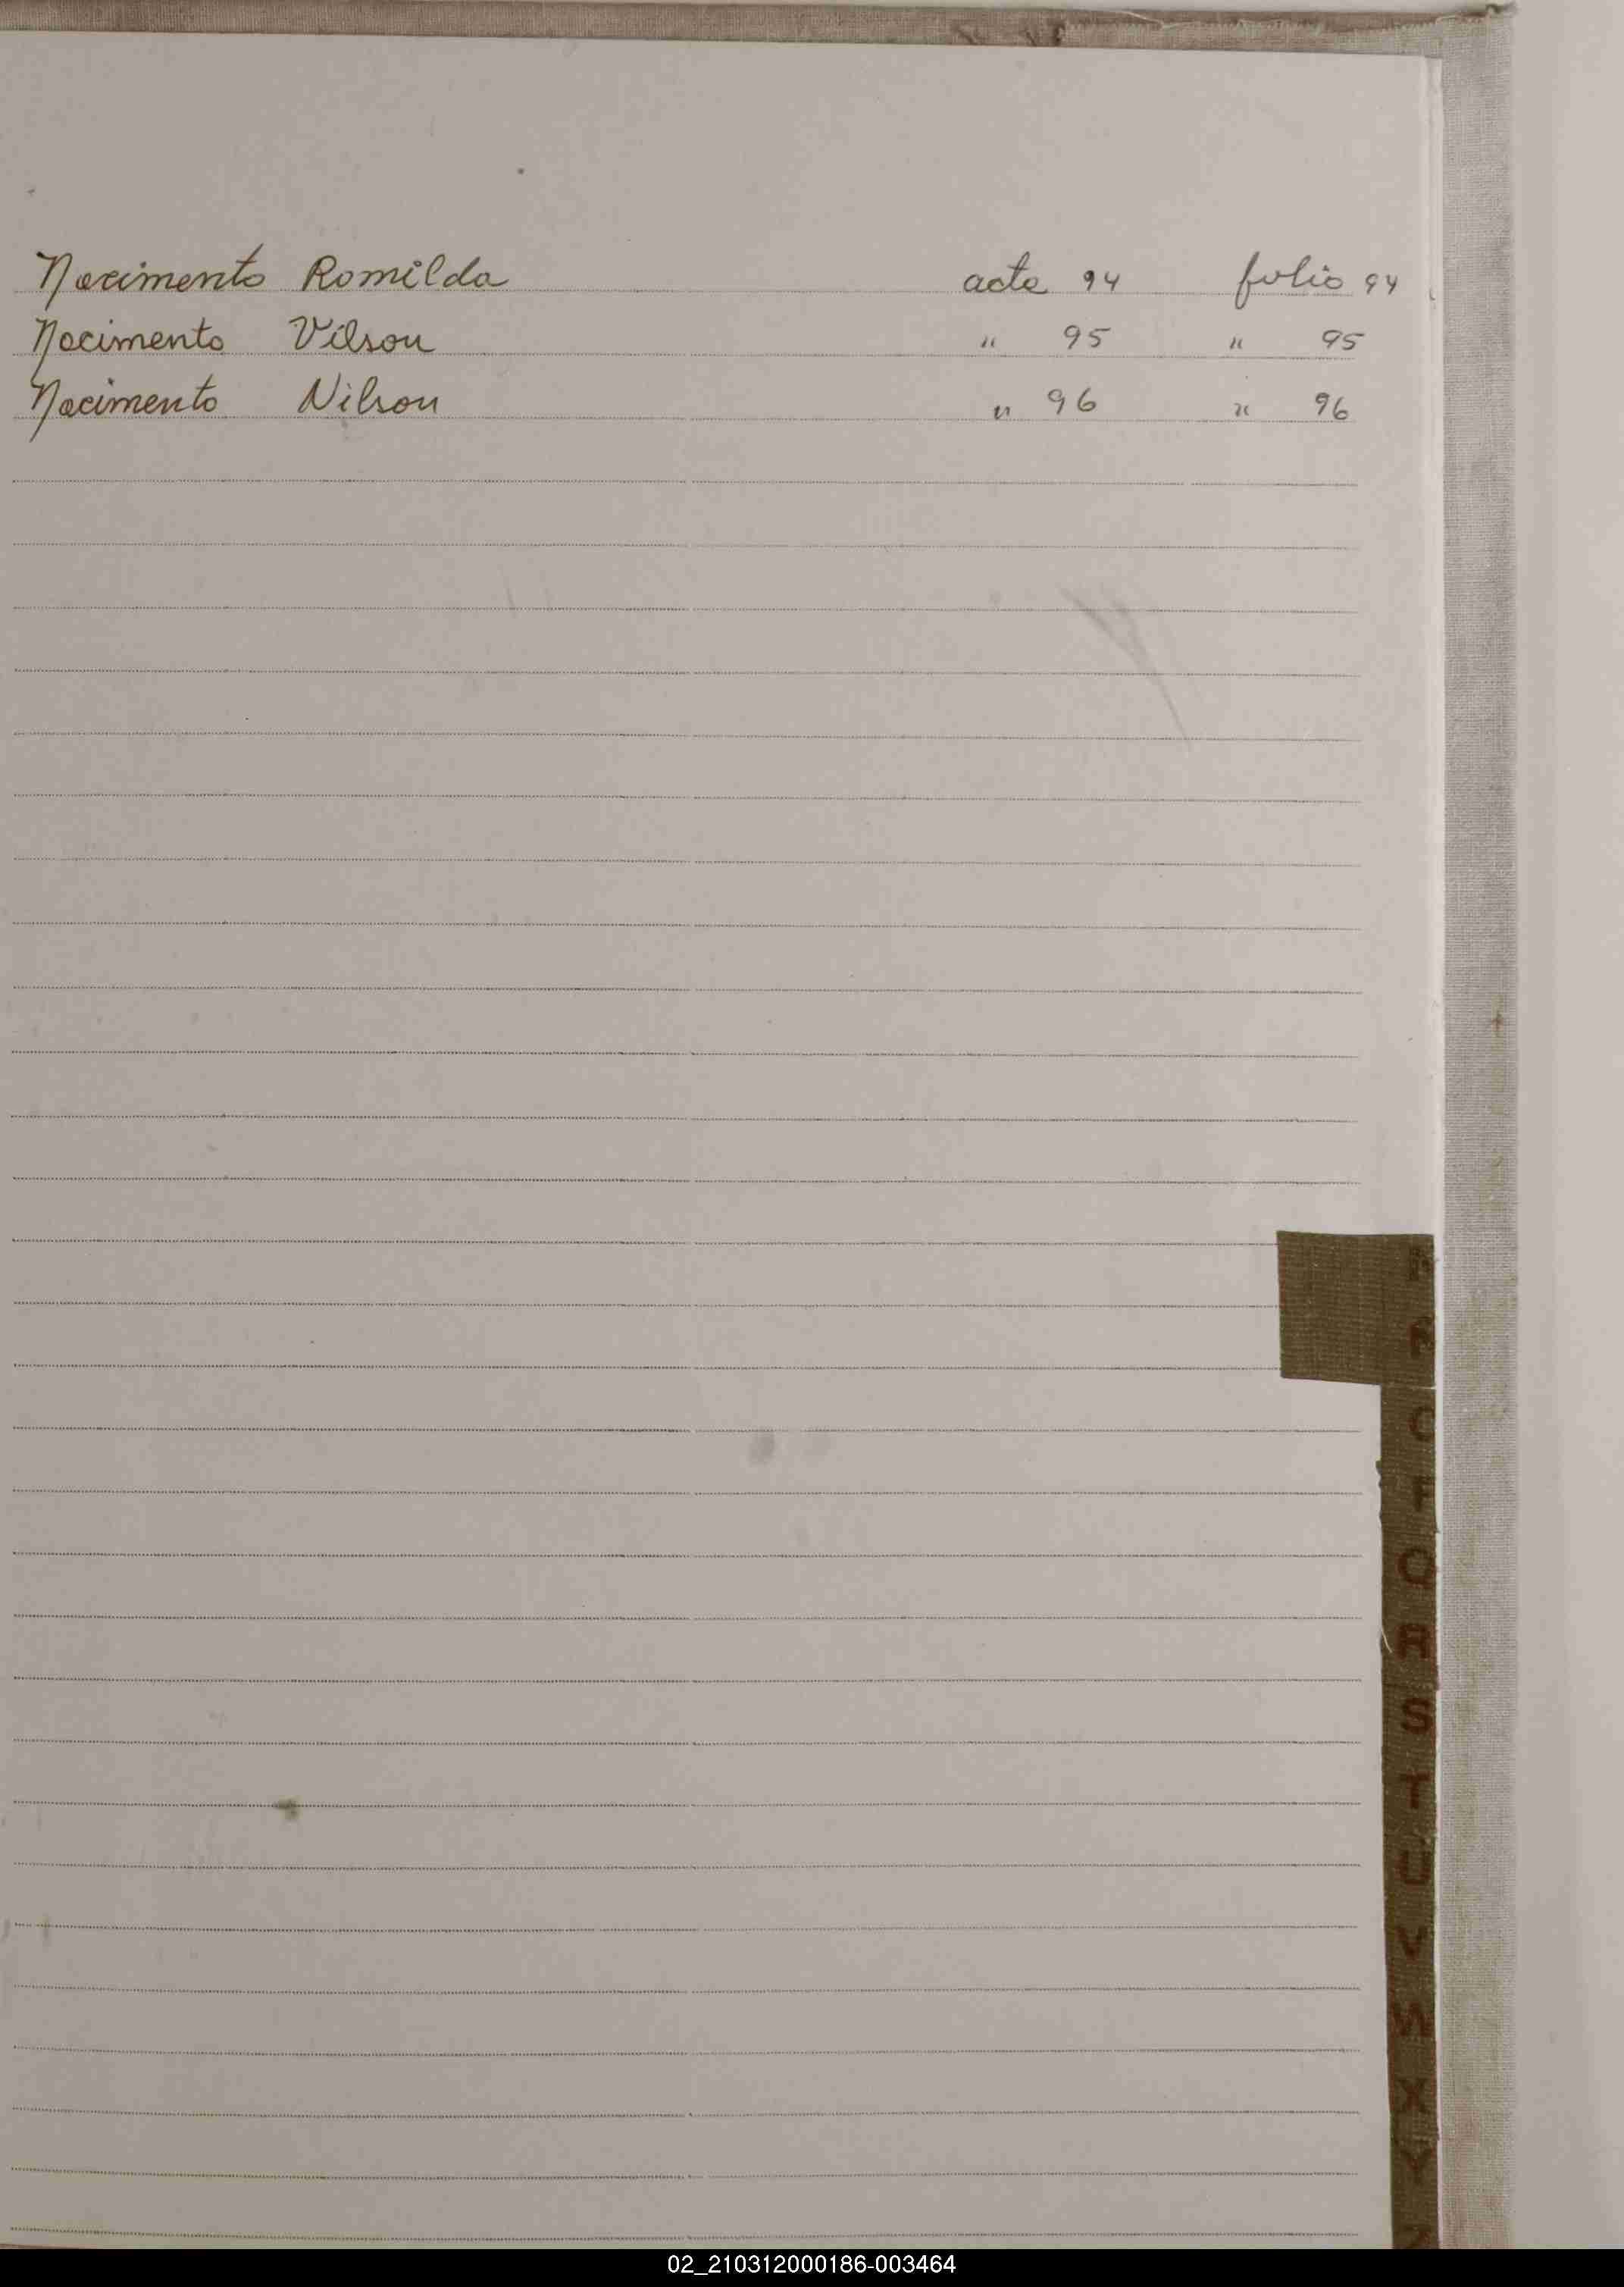 Nacimento Romilda acta 94 folio 94
Nacimento Vilson " 95 " 95
Nacimento Nilson " 96 " 96
Ñ
O
P
Q
R
S
T
U
V
W
X
Y
Z
02_210312000186-003464